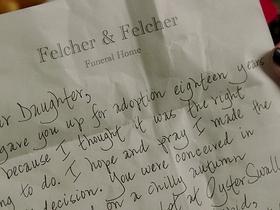 Felcher & Felcher
Funeral Home
ar Daughter,
gave you up for adoption eighteen years
because I thought it was the right
ng to do. I hope and pray I made the
decision. You were conceived in
on a chilly autumn
lot at Oyster Swall